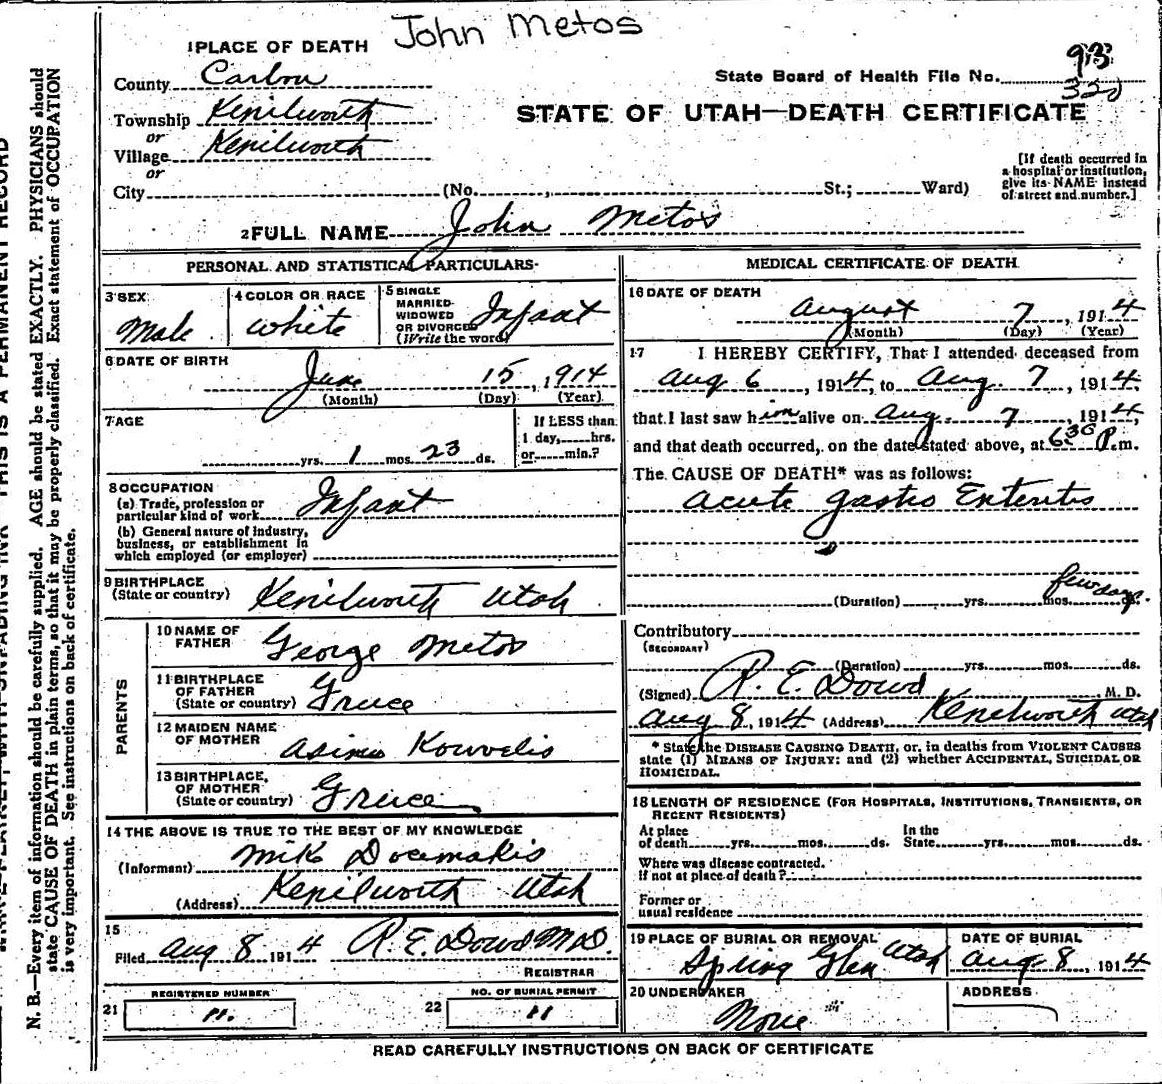 John Metos
1 PLACE OF DEATH
County Carbon
State Board of Health File No. 93
320
Township Kenilworth
STATE OF UTAH—DEATH CERTIFICATE
or
Village Kenilworth
or
City (No. , St.; Ward)
[If death occurred in
a hospital or institution,
give its NAME instead
of street and number.]
2 FULL NAME John Metos
PERSONAL AND STATISTICAL PARTICULARS
3 SEX
Male
4 COLOR OR RACE
White
5 SINGLE
MARRIED
WIDOWED
OR DIVORCED
(Write the word)
Infant
6 DATE OF BIRTH
June 15, 1914
(Month) (Day) (Year)
7 AGE
yrs. 1 mos. 23 ds.
If LESS than
1 day, hrs.
or min.?
8 OCCUPATION
(a) Trade, profession or
particular kind of work Infant
(b) General nature of industry,
business, or establishment in
which employed (or employer)
9 BIRTHPLACE
(State or country) Kenilworth Utah
PARENTS
10 NAME OF
FATHER George Metos
11 BIRTHPLACE
OF FATHER
(State or country) Greece
12 MAIDEN NAME
OF MOTHER Kouvelis
13 BIRTHPLACE,
OF MOTHER
(State or country) Greece
14 THE ABOVE IS TRUE TO THE BEST OF MY KNOWLEDGE
(Informant) Mike
(Address) Kenilworth Utah
15
Filed Aug 8 1914 R. E. Dowd M.D.
REGISTRAR
REGISTERED NUMBER
21 11.
NO. OF BURIAL PERMIT
22 11
MEDICAL CERTIFICATE OF DEATH
16 DATE OF DEATH
August 7, 1914
(Month) (Day) (Year)
17 I HEREBY CERTIFY, That I attended deceased from
Aug 6, 1914, to Aug. 7, 1914.
that I last saw him alive on Aug. 7, 1914,
and that death occurred, on the date stated above, at 6:30 P.m.
The CAUSE OF DEATH* was as follows:
Acute Gastro Enteritis
few days
(Duration) yrs. mos. ds.
Contributory
(SECONDARY)
(Duration) yrs. mos. ds.
(Signed) R. E. Dowd M. D.
Aug 8, 1914 (Address) Kenilworth Utah
* State the DISEASE CAUSING DEATH, or, in deaths from VIOLENT CAUSES
state (1) MEANS OF INJURY: and (2) whether ACCIDENTAL, SUICIDAL OR
HOMICIDAL.
18 LENGTH OF RESIDENCE (FOR HOSPITALS, INSTITUTIONS, TRANSIENTS, OR
RECENT RESIDENTS)
At place
of death yrs. mos. ds.
In the
State yrs. mos. ds.
Where was disease contracted.
if not at place of death?
Former or
usual residence
19 PLACE OF BURIAL OR REMOVAL
Spring Glen Utah
DATE OF BURIAL
Aug 8, 1914
20 UNDERTAKER
None
ADDRESS
READ CAREFULLY INSTRUCTIONS ON BACK OF CERTIFICATE
N. B.—Every item of information should be carefully supplied. AGE should be stated EXACTLY. PHYSICIANS should
state CAUSE OF DEATH in plain terms, so that it may be properly classified. Exact statement of OCCUPATION
is very important. See instructions on back of certificate.